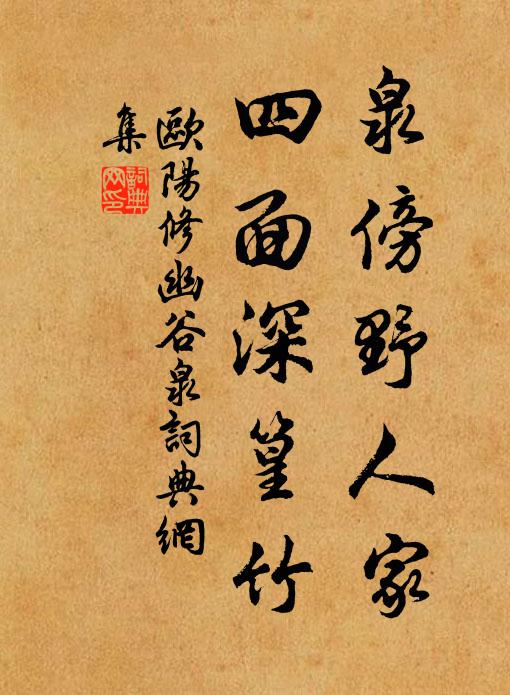 泉傍野人家
四面深篁竹
歐陽修幽谷泉詞典網
集
詞典
网印